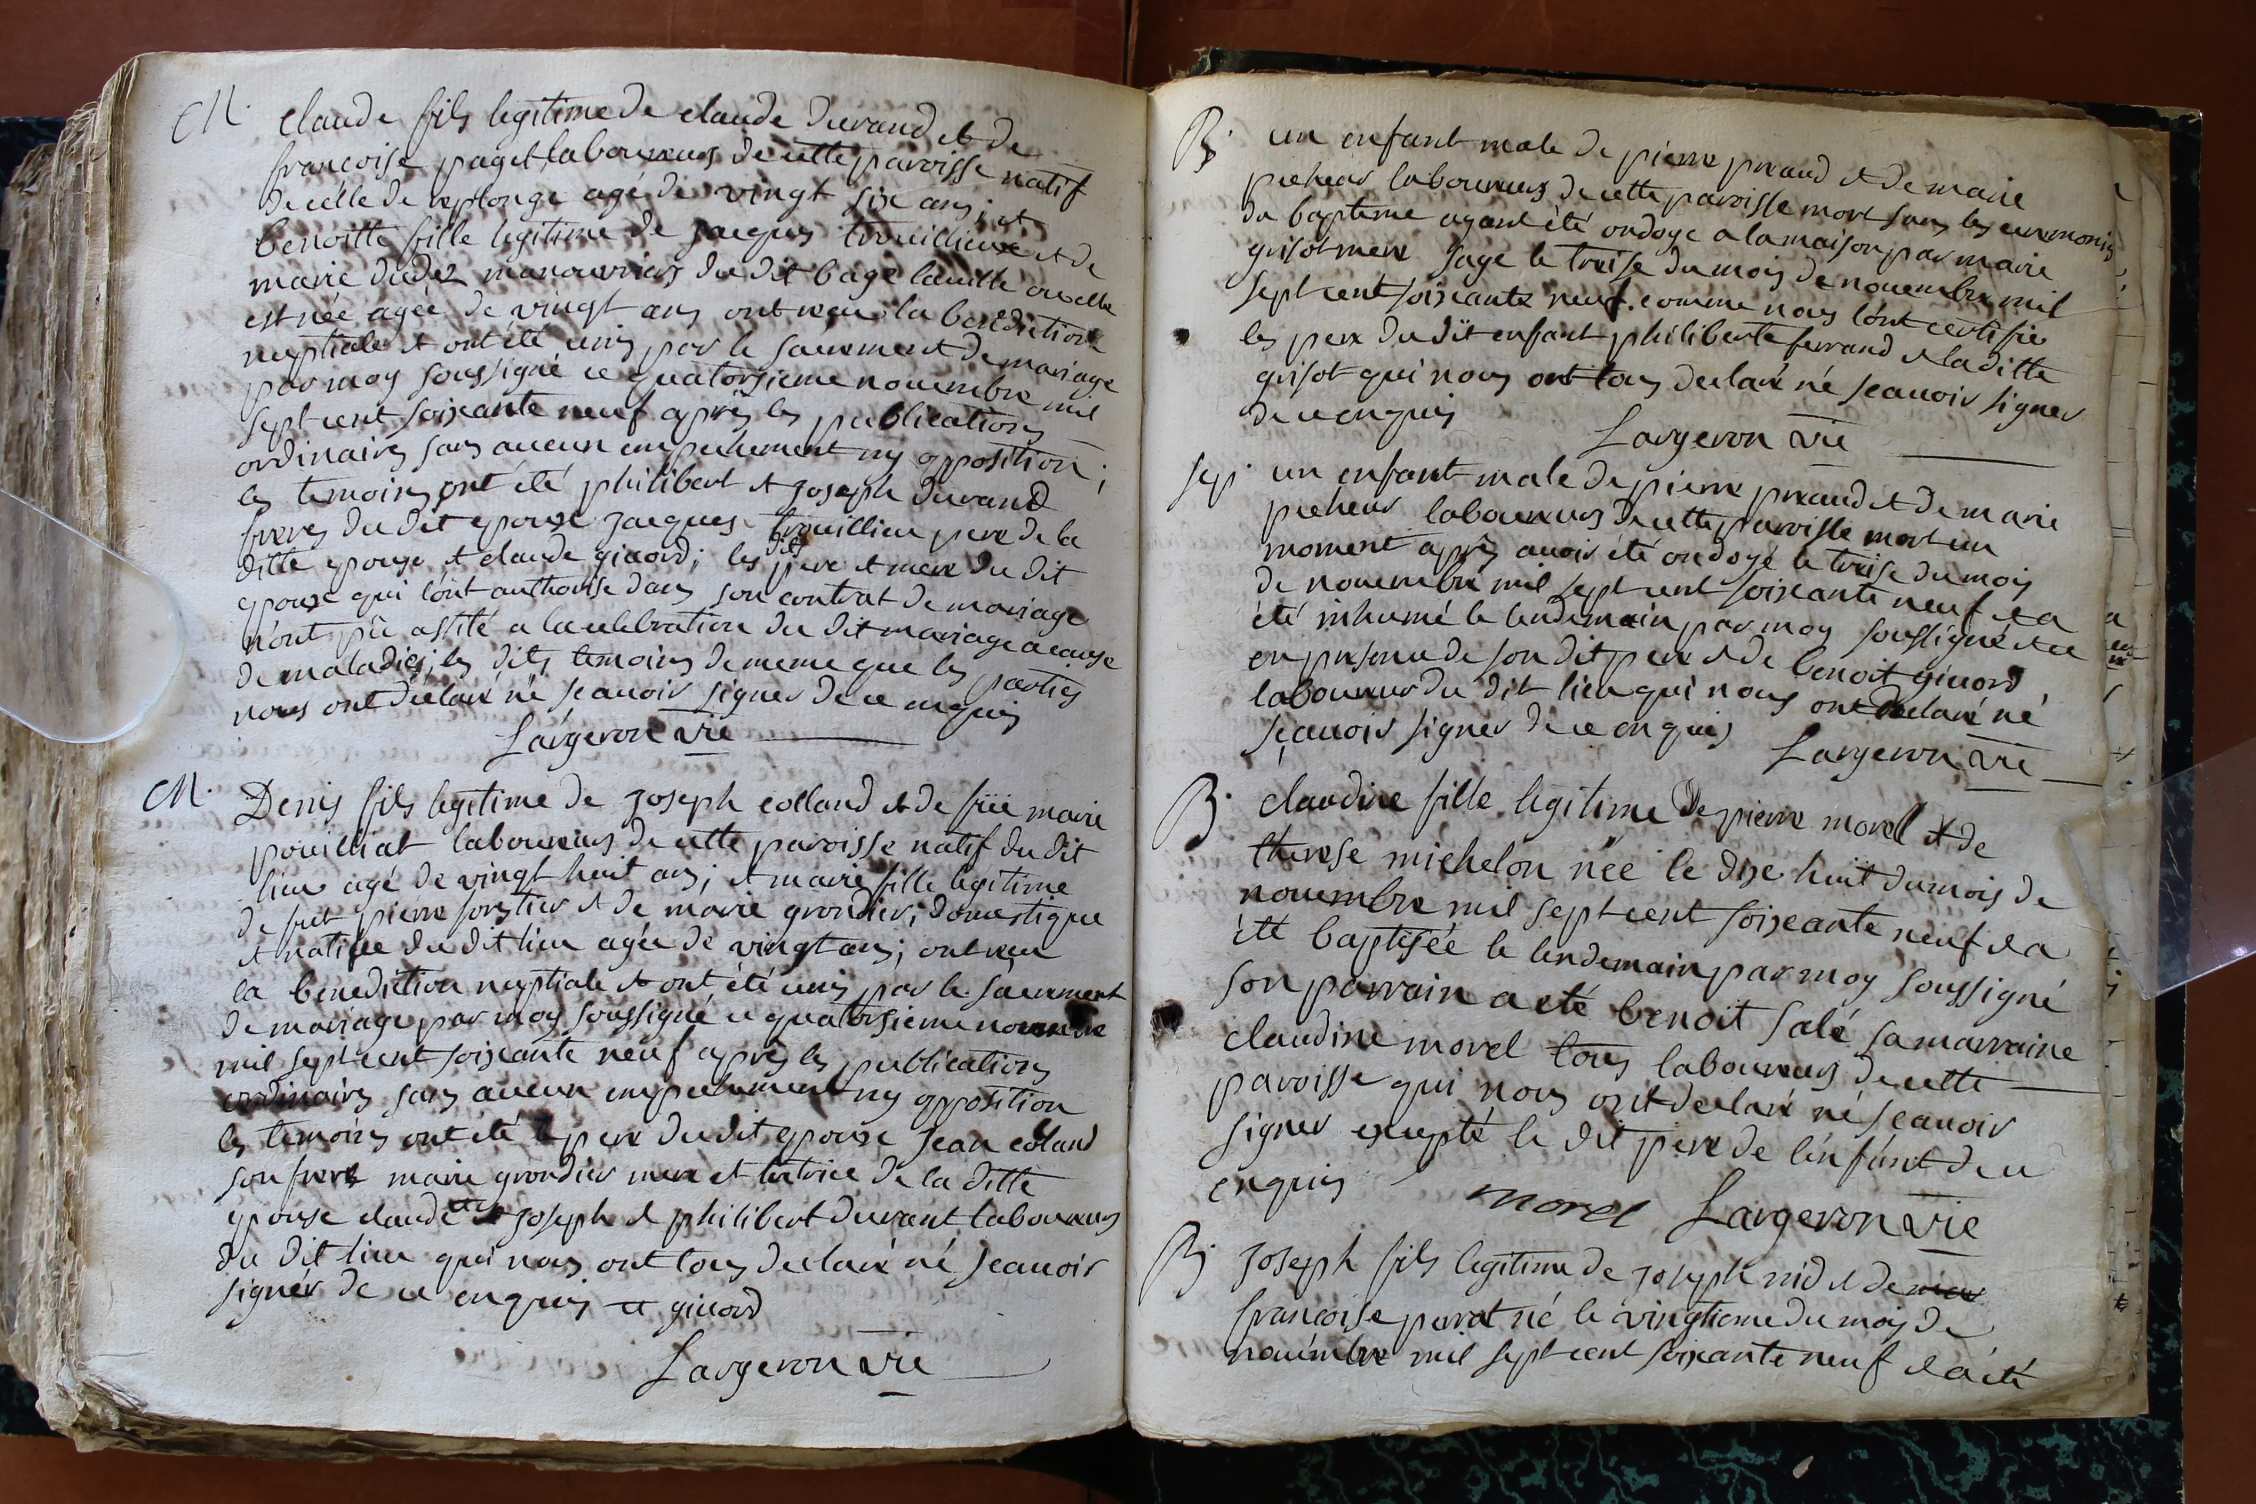 M. Claude fils legitime de claude durand et de
francoise paget laboureurs de cette paroisse natif
de celle de replonge agé de vingt six ans; et
benoitte fille legitime de jacques trouillieux et de
marie dudez manouvriers du dit bagé laville ou elle
est née agée de vingt ans ont reçu la benediction
nuptiale et ont été unis par le sacrement de mariage
par moy soussigné ce quatorsieme novembre mil
sept cent soixante neuf après les publications
ordinaires sans aucun empechement ny opposition;
les temoins ont été philibert et joseph durand
freres du dit epoux jacques trouillieu pere de la
ditte epouse et claude givord; les dits pere et mere du dit
epoux qui l'ont authorisé dans son contrat de mariage
n'ont pû assité a la celebration du dit mariage a cause
de maladies; les dits temoins de meme que les parties
nous ont déclaré né scavoir signer de ce enquis
Largeron vic
M. Denis fils legitime de joseph colland et de füe marie
pouilliat laboureurs de cette paroisse natif du dit
lieu agé de vingt huit ans; et marie fille legitime
de fut pierre forestier et de marie grondier, domestique
et native du dit lieu agée de vingt ans; ont reçu
la benediction nuptiale et ont été unis par le sacrement
de mariage par moy soussigné ce quatorsieme novembre
mil sept cent soixante neuf après les publications
ordinaires sans aucun empechement ny opposition
les temoins ont été le pere du dit epoux jean coland
son frere marie grondier mere et tutrice de la ditte
epouse claude joseph et philibert durant laboureurs
du dit lieu qui nous ont tous declaré né scavoir
signer de ce enquis givord
Largeron vic
B. un enfant male de pierre preaud et de marie
precheur laboureurs de cette paroisse mort sans les ceremonies
du bapteme ayant été ondoyé a la maison par marie
grisot mere sage le treise du mois de novembre mil
sept cent soixante neuf comme nous l'ont certifié
les pere du dit enfant philiberte ferrand et la ditte
grisot qui nous ont tous declaré né scavoir signer
de ce enquis Largeron vic
sep. un enfant male de pierre preaud et de marie
precheur laboureurs de cette paroisse mort un
moment après avoir été ondoyé le treise du mois
de novembre mil sept cent soixante neuf et a
été inhumé le lendemain par moy soussigné et ce
en presence de son dit pere et de benoit givord
laboureur du dit lieu qui nous ont declaré né
scavoir signer de ce enquis Largeron vic
B. claudine fille legitime de pierre morel et de
therese michelon née le dix huit du mois de
novembre mil sept cent soixante neuf et a
été baptisée le lendemain par moy soussigné
son parrain a eté benoit salé sa marraine
claudine morel tous laboureurs de cette
paroisse qui nous ont declaré né scavoir
signer excepté le dit pere de l'enfant de ce
enquis morel Largeron vic
B. joseph fils legitime de joseph nid et de
francoise perrat né le vingtieme du mois de
novembre mil sept cent soixante neuf et a été